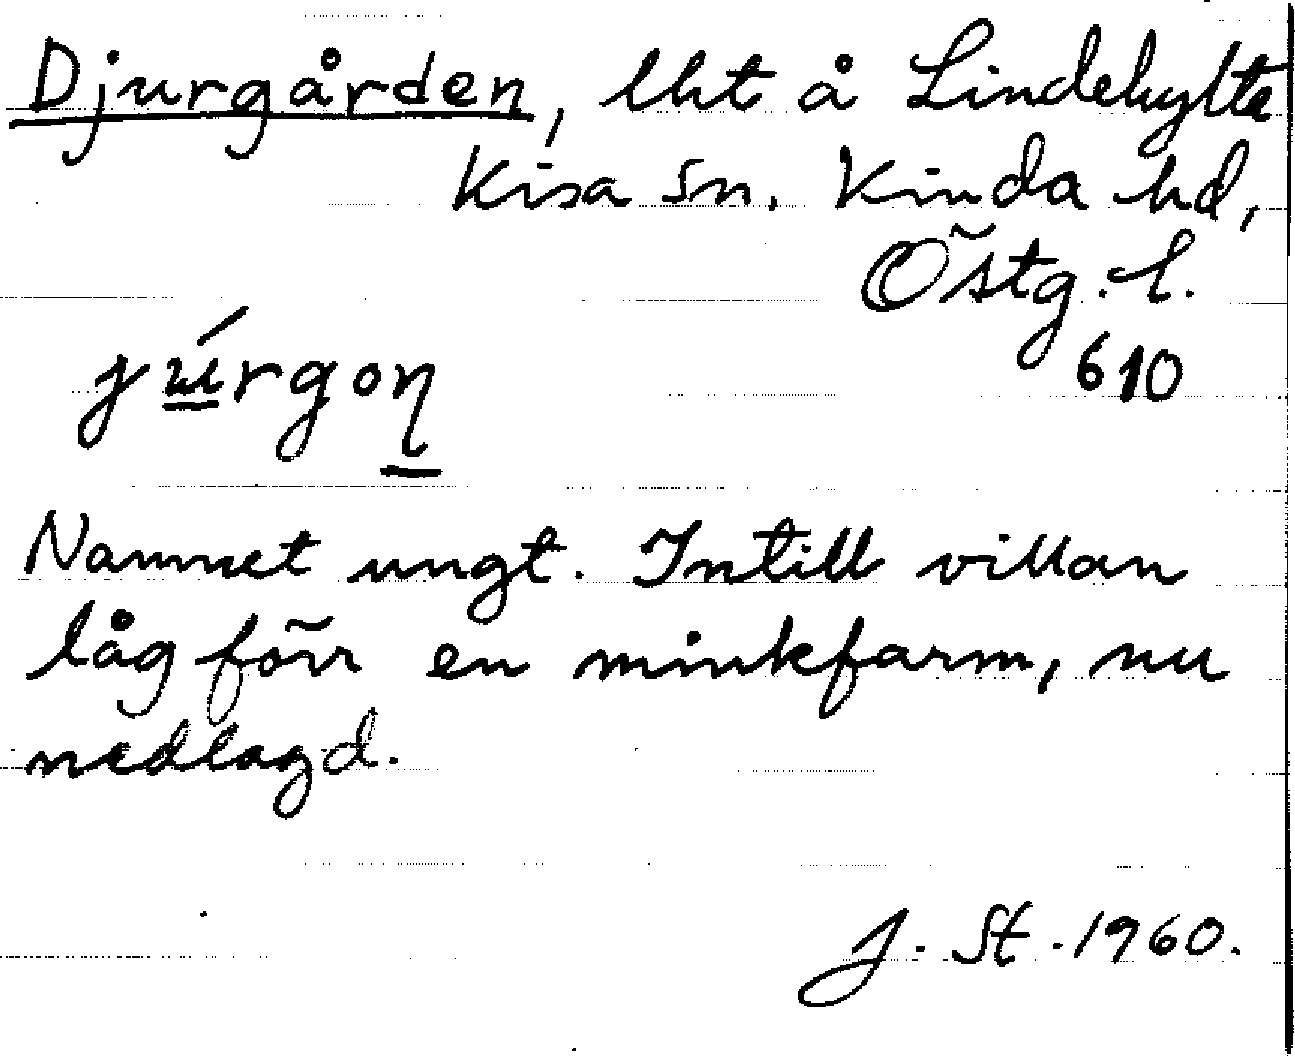 Djurgården, lht å Lindehylte
Kisa sn. Kinda hd,
Östg. l.
610
júrgoɳ
Namnet ungt. Intill villan
låg förr en minkfarm, nu
nedlagd.
J. St. 1960.